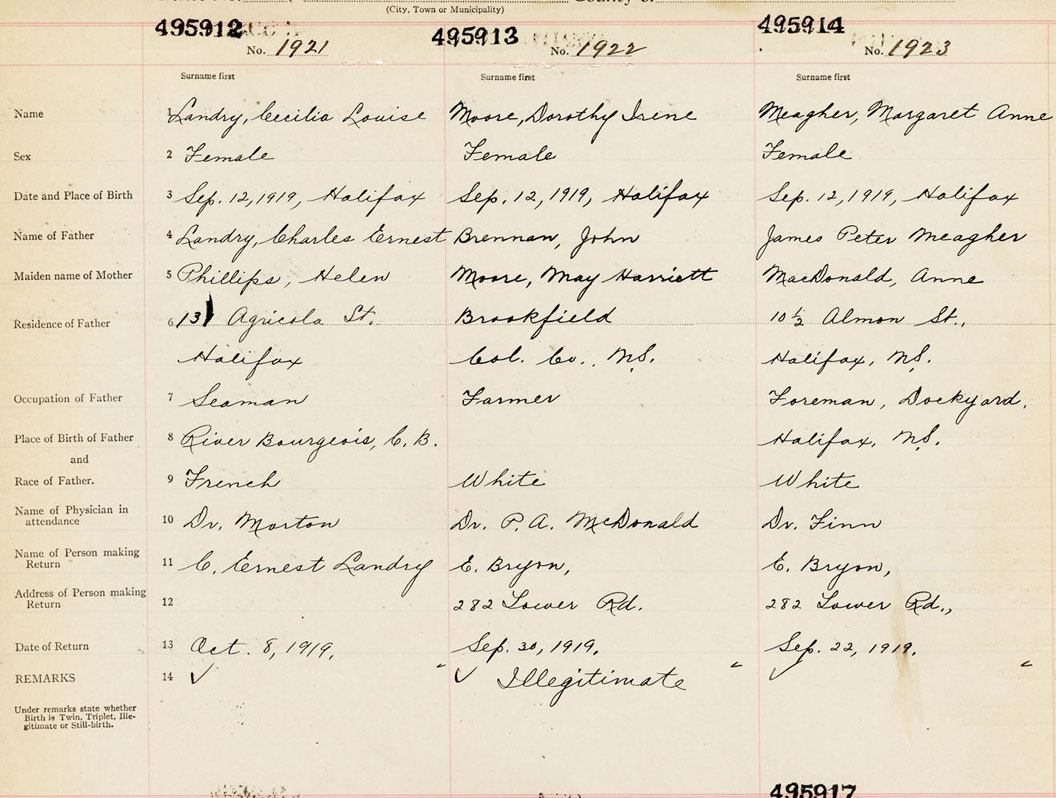 (City, Town or Municipality)
495912 495913 495914
No. 1921 No. 1922 No. 1923
Surname first Surname first Surname first
Name 1 Landry, Cecilia Louise Moore, Dorothy Irene Meagher, Margaret Anne
Sex 2 Female Female Female
Date and Place of Birth 3 Sep. 12, 1919, Halifax Sep. 12, 1919, Halifax Sep. 12, 1919, Halifax
Name of Father 4 Landry, Charles Ernest Brennan, John James Peter Meagher
Maiden name of Mother 5 Phillips, Helen Moore, May Harriett MacDonald, Anne
Residence of Father 6 131 Agricola St. Brookfield 10 ½ Almon St.,
Halifax Col. Co., N.S. Halifax, N.S.
Occupation of Father 7 Seaman Farmer Foreman, Dockyard,
Place of Birth of Father 8 River Bourgeois, C.B. Halifax, N.S.
and
Race of Father. 9 French White White
Name of Physician in
attendance 10 Dr. Morton Dr. P. A. McDonald Dr. Finn
Name of Person making
Return 11 C. Ernest Landry E. Bryon, E. Bryon,
Address of Person making
Return 12 282 Lower Rd. 282 Lower Rd.,
Date of Return 13 Oct. 8, 1919. Sep. 30, 1919. Sep. 22, 1919.
REMARKS 14 ✓ " ✓ Illegitimate " ✓ "
Under remarks state whether
Birth is Twin, Triplet, Ille-
gitimate or Still-birth.
495917